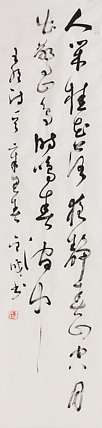 人閒桂花落夜静春山空月
出驚山鳥時鳴春澗中
王維詩
書